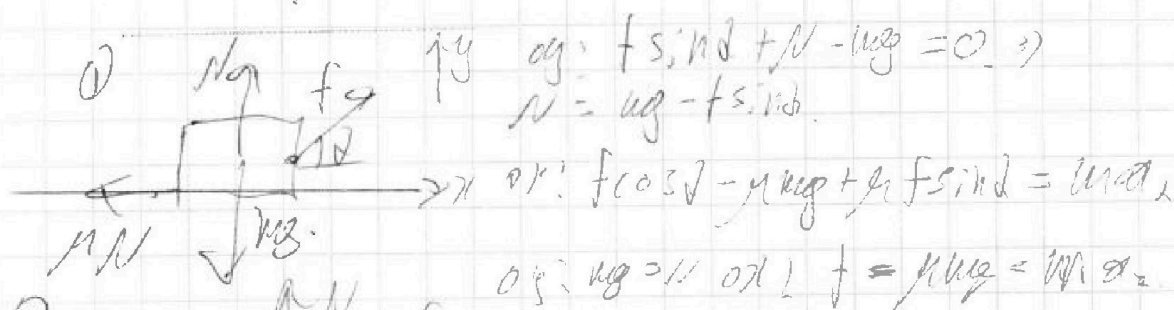 ① N f α y oy: f sinα + N - mg = 0 ⇒
N = mg - f sinα.
x ox: f cosα - μmg + μ f sinα = ma
μN mg.
oy: mg = N ox: f = μmg = ma₂